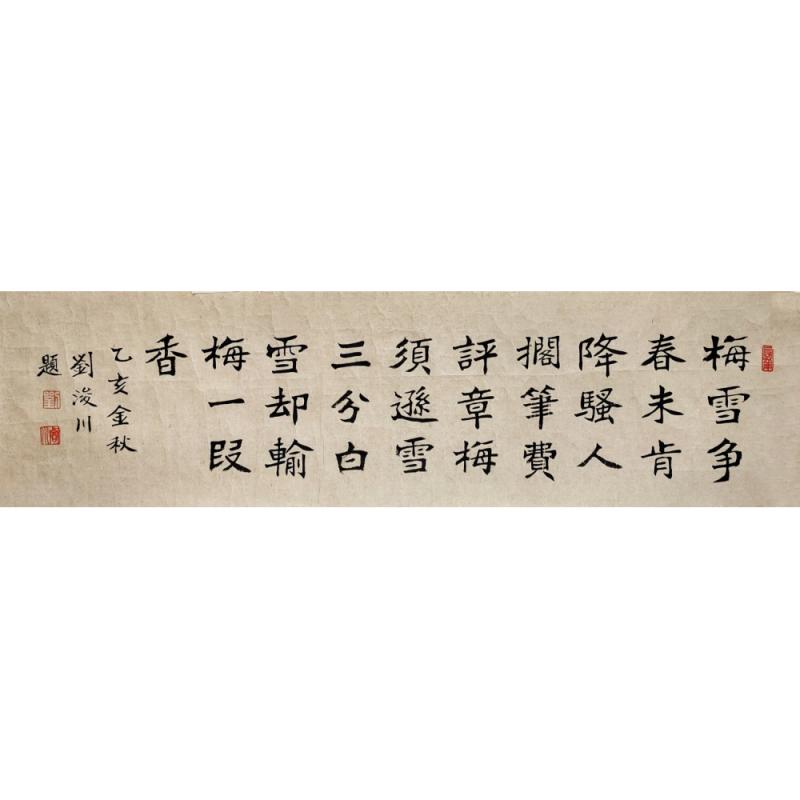 梅雪争
春未肯
降騷人
擱筆費
評章梅
須遜雪
三分白
雪却輸
梅一段
香
乙亥金秋
劉浚川
題